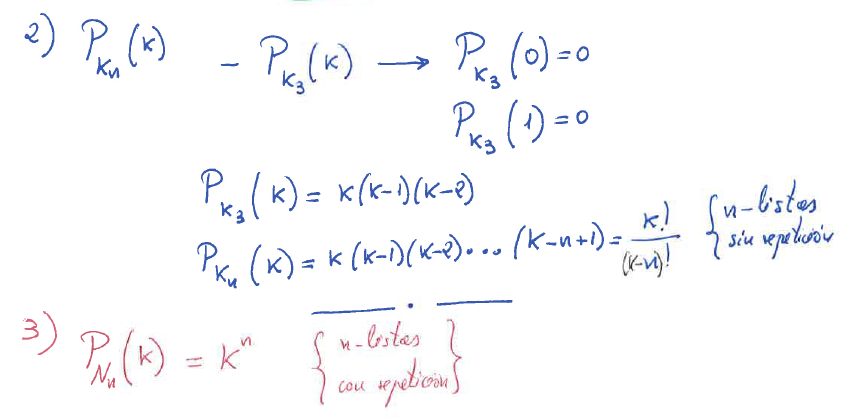 2) P_{K_n}(k) - P_{K_3}(k) → P_{K_3}(0) = 0
P_{K_3}(1) = 0
P_{K_3}(k) = k(k-1)(k-2)
P_{K_n}(k) = k(k-1)(k-2)...(k-n+1) = k!/(k-n)! { n-listas sin repetición
3) P_{N_n}(k) = k^n { n-listas con repetición }